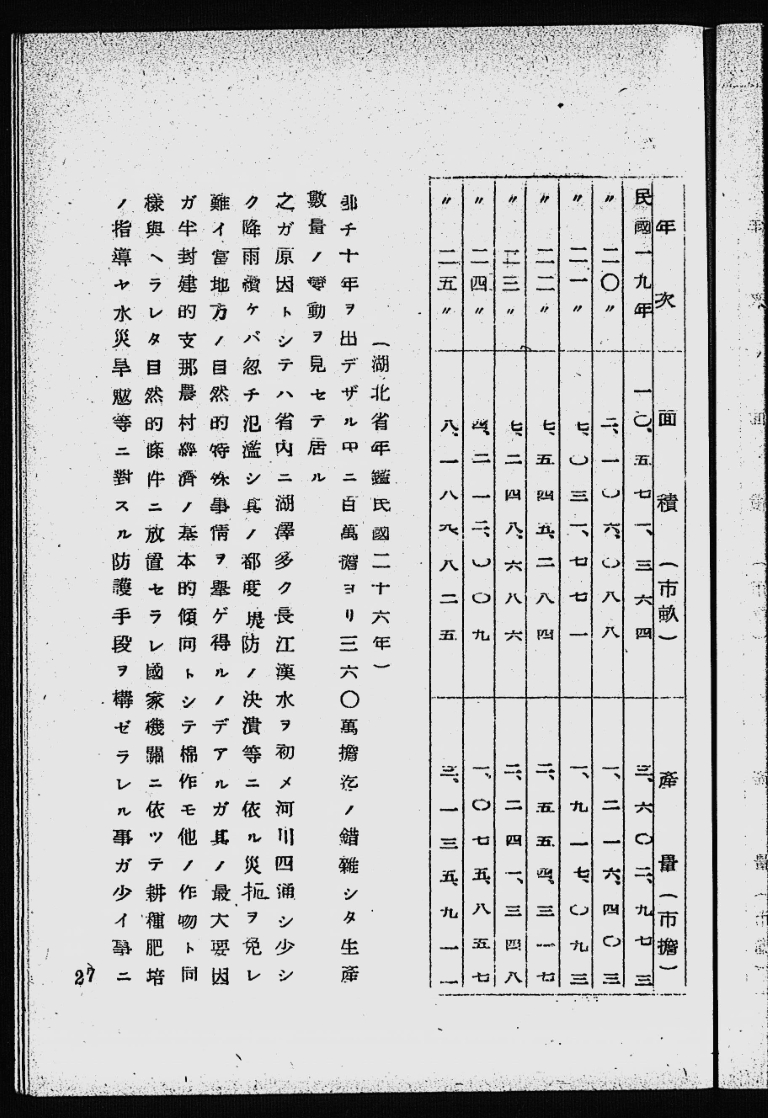 年次 面積（市畝） 産量（市擔）
民國一九年 一〇、五七一、三六四 三、六〇二、九七三
〃 二〇〃 二、一〇六、〇八八 一、二一六、四〇三
〃 二一〃 七、〇三一、七七一 一、九一七、〇九三
〃 二二〃 七、五四五、二八四 二、五五四、三一七
〃 二三〃 七、二四八、六八六 二、二四一、三四八
〃 二四〃 四、二一二、〇〇九 一、〇七五、八五七
〃 二五〃 八、一八九、八二五 三、一三五、九一一
（湖北省年鑑民國二十六年）
卽チ十年ヲ出デザル中ニ百萬擔ヨリ三六〇萬擔迄ノ錯雜シタ生產
數量ノ變動ヲ見セテ居ル
之ガ原因トシテハ省内ニ湖澤多ク長江漢水ヲ初メ河川四通シ少シ
ク降雨續ケバ忽チ氾濫シ其ノ都度堤防ノ決潰等ニ依ル災扼ヲ免レ
難イ當地方ノ自然的特殊事情ヲ擧ゲ得ルノデアルガ其ノ最大要因
ガ半封建的支那農村經濟ノ基本的傾向トシテ棉作モ他ノ作物ト同
樣與ヘラレタ自然的條件ニ放置セラレ國家機關ニ依ツテ耕種肥培
ノ指導ヤ水災旱魃等ニ對スル防護手段ヲ構ゼラレル事ガ少イ事ニ
27